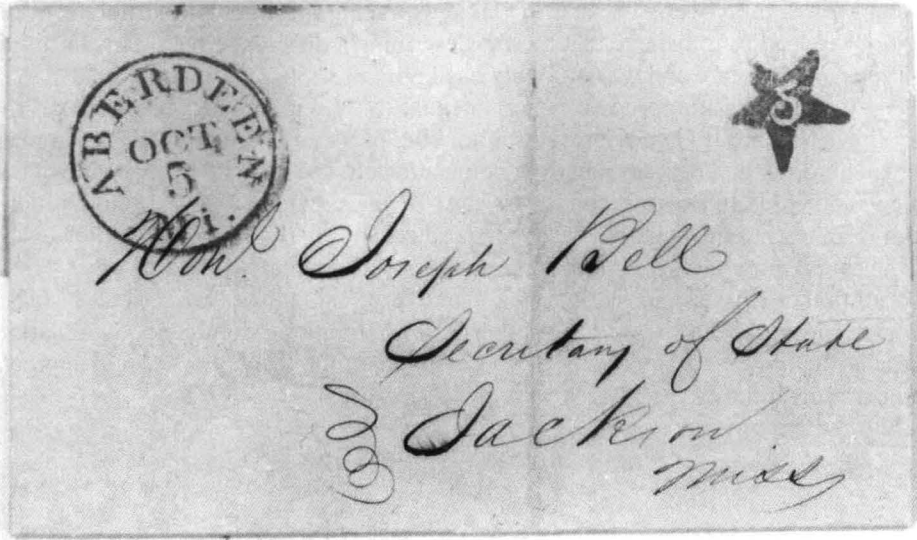 ABERDEEN
OCT.
5
Mi.
5
Honl. Joseph Bell
Secretary of State
Jackson
Miss